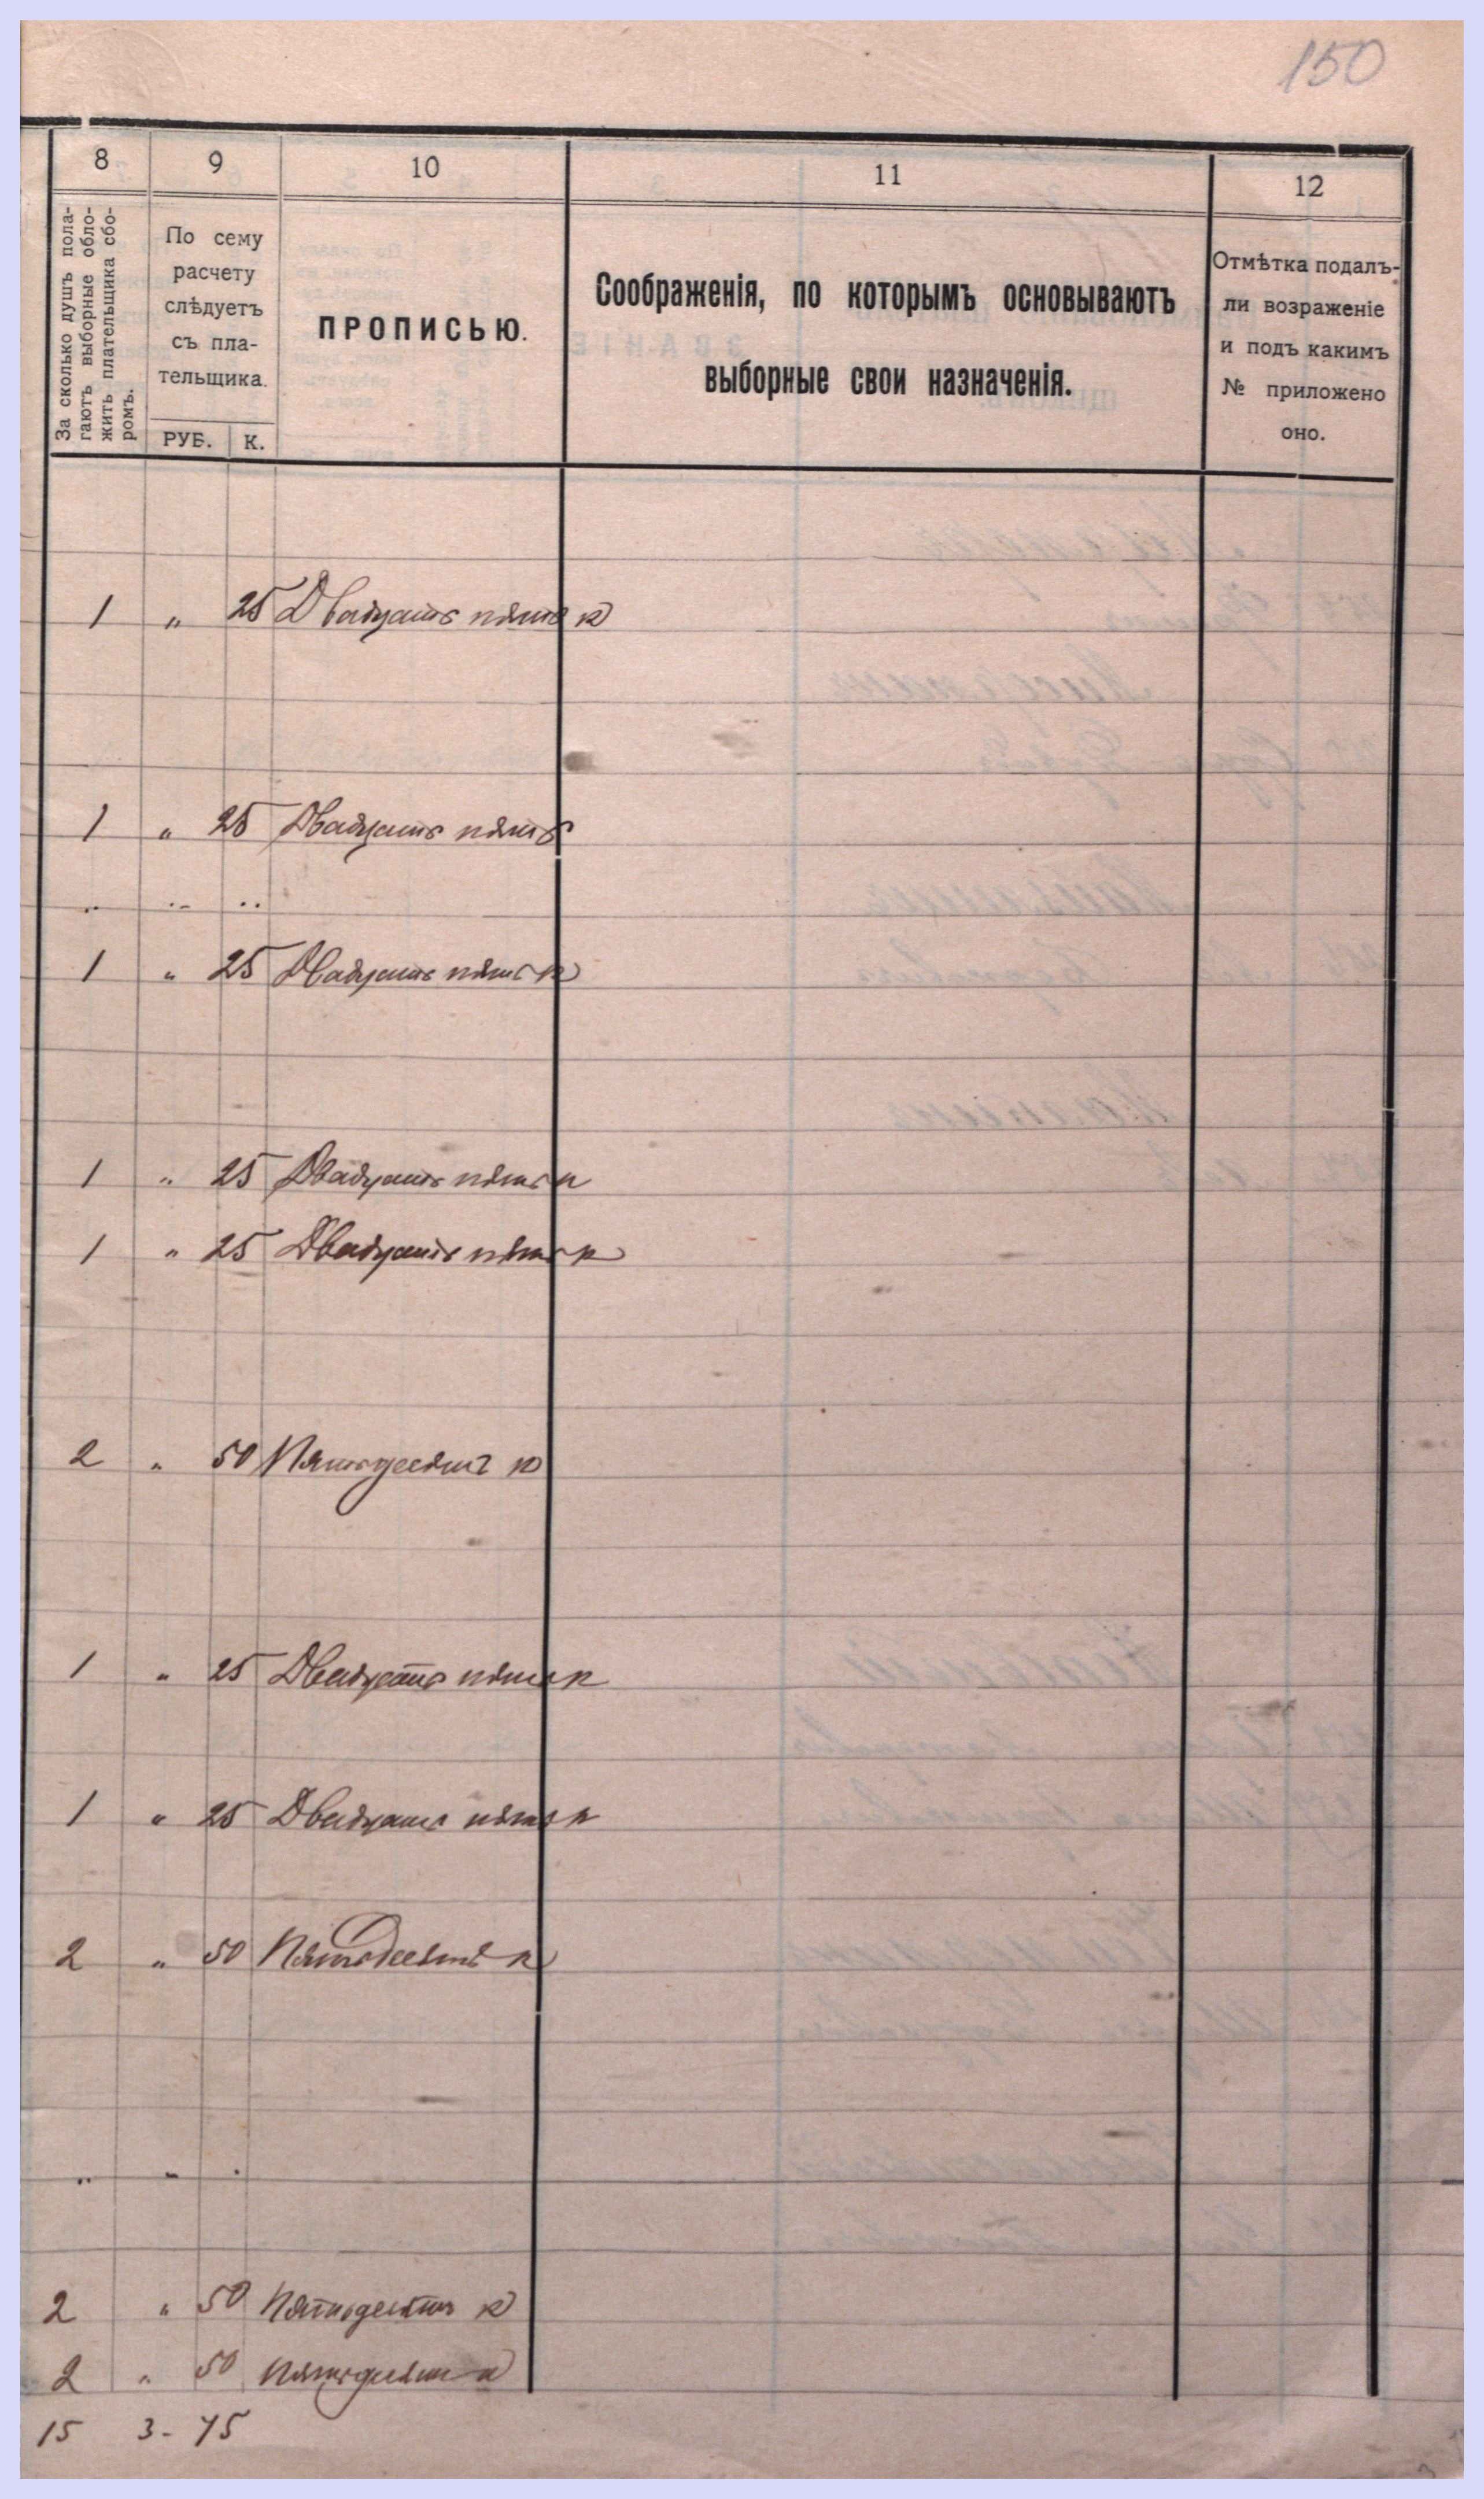 150
8 9 10 11 12
За сколько душъ пола-
гаютъ выборные обло-
жить плательщика сбо-
ромъ.
По сему
расчету
слѣдуетъ
съ пла-
тельщика.
РУБ. К.
ПРОПИСЬЮ.
Соображенія, по которымъ основываютъ
выборные свои назначенія.
Отмѣтка подалъ-
ли возраженіе
и подъ какимъ
№ приложено
оно.
1 " 25 Двадцать пять к
1 " 25 Двадцать пять
" " "
1 " 25 Двадцать пять к
1 " 25 Двадцать пять к
1 " 25 Двадцать пять к
2 " 50 Пятьдесятъ к
1 " 25 Двадцать пять к
1 " 25 Двадцать пять к
2 " 50 Пятьдесятъ к
" " "
2 " 50 Пятьдесятъ к
2 " 50 Пятьдесятъ к
15 3 - 75